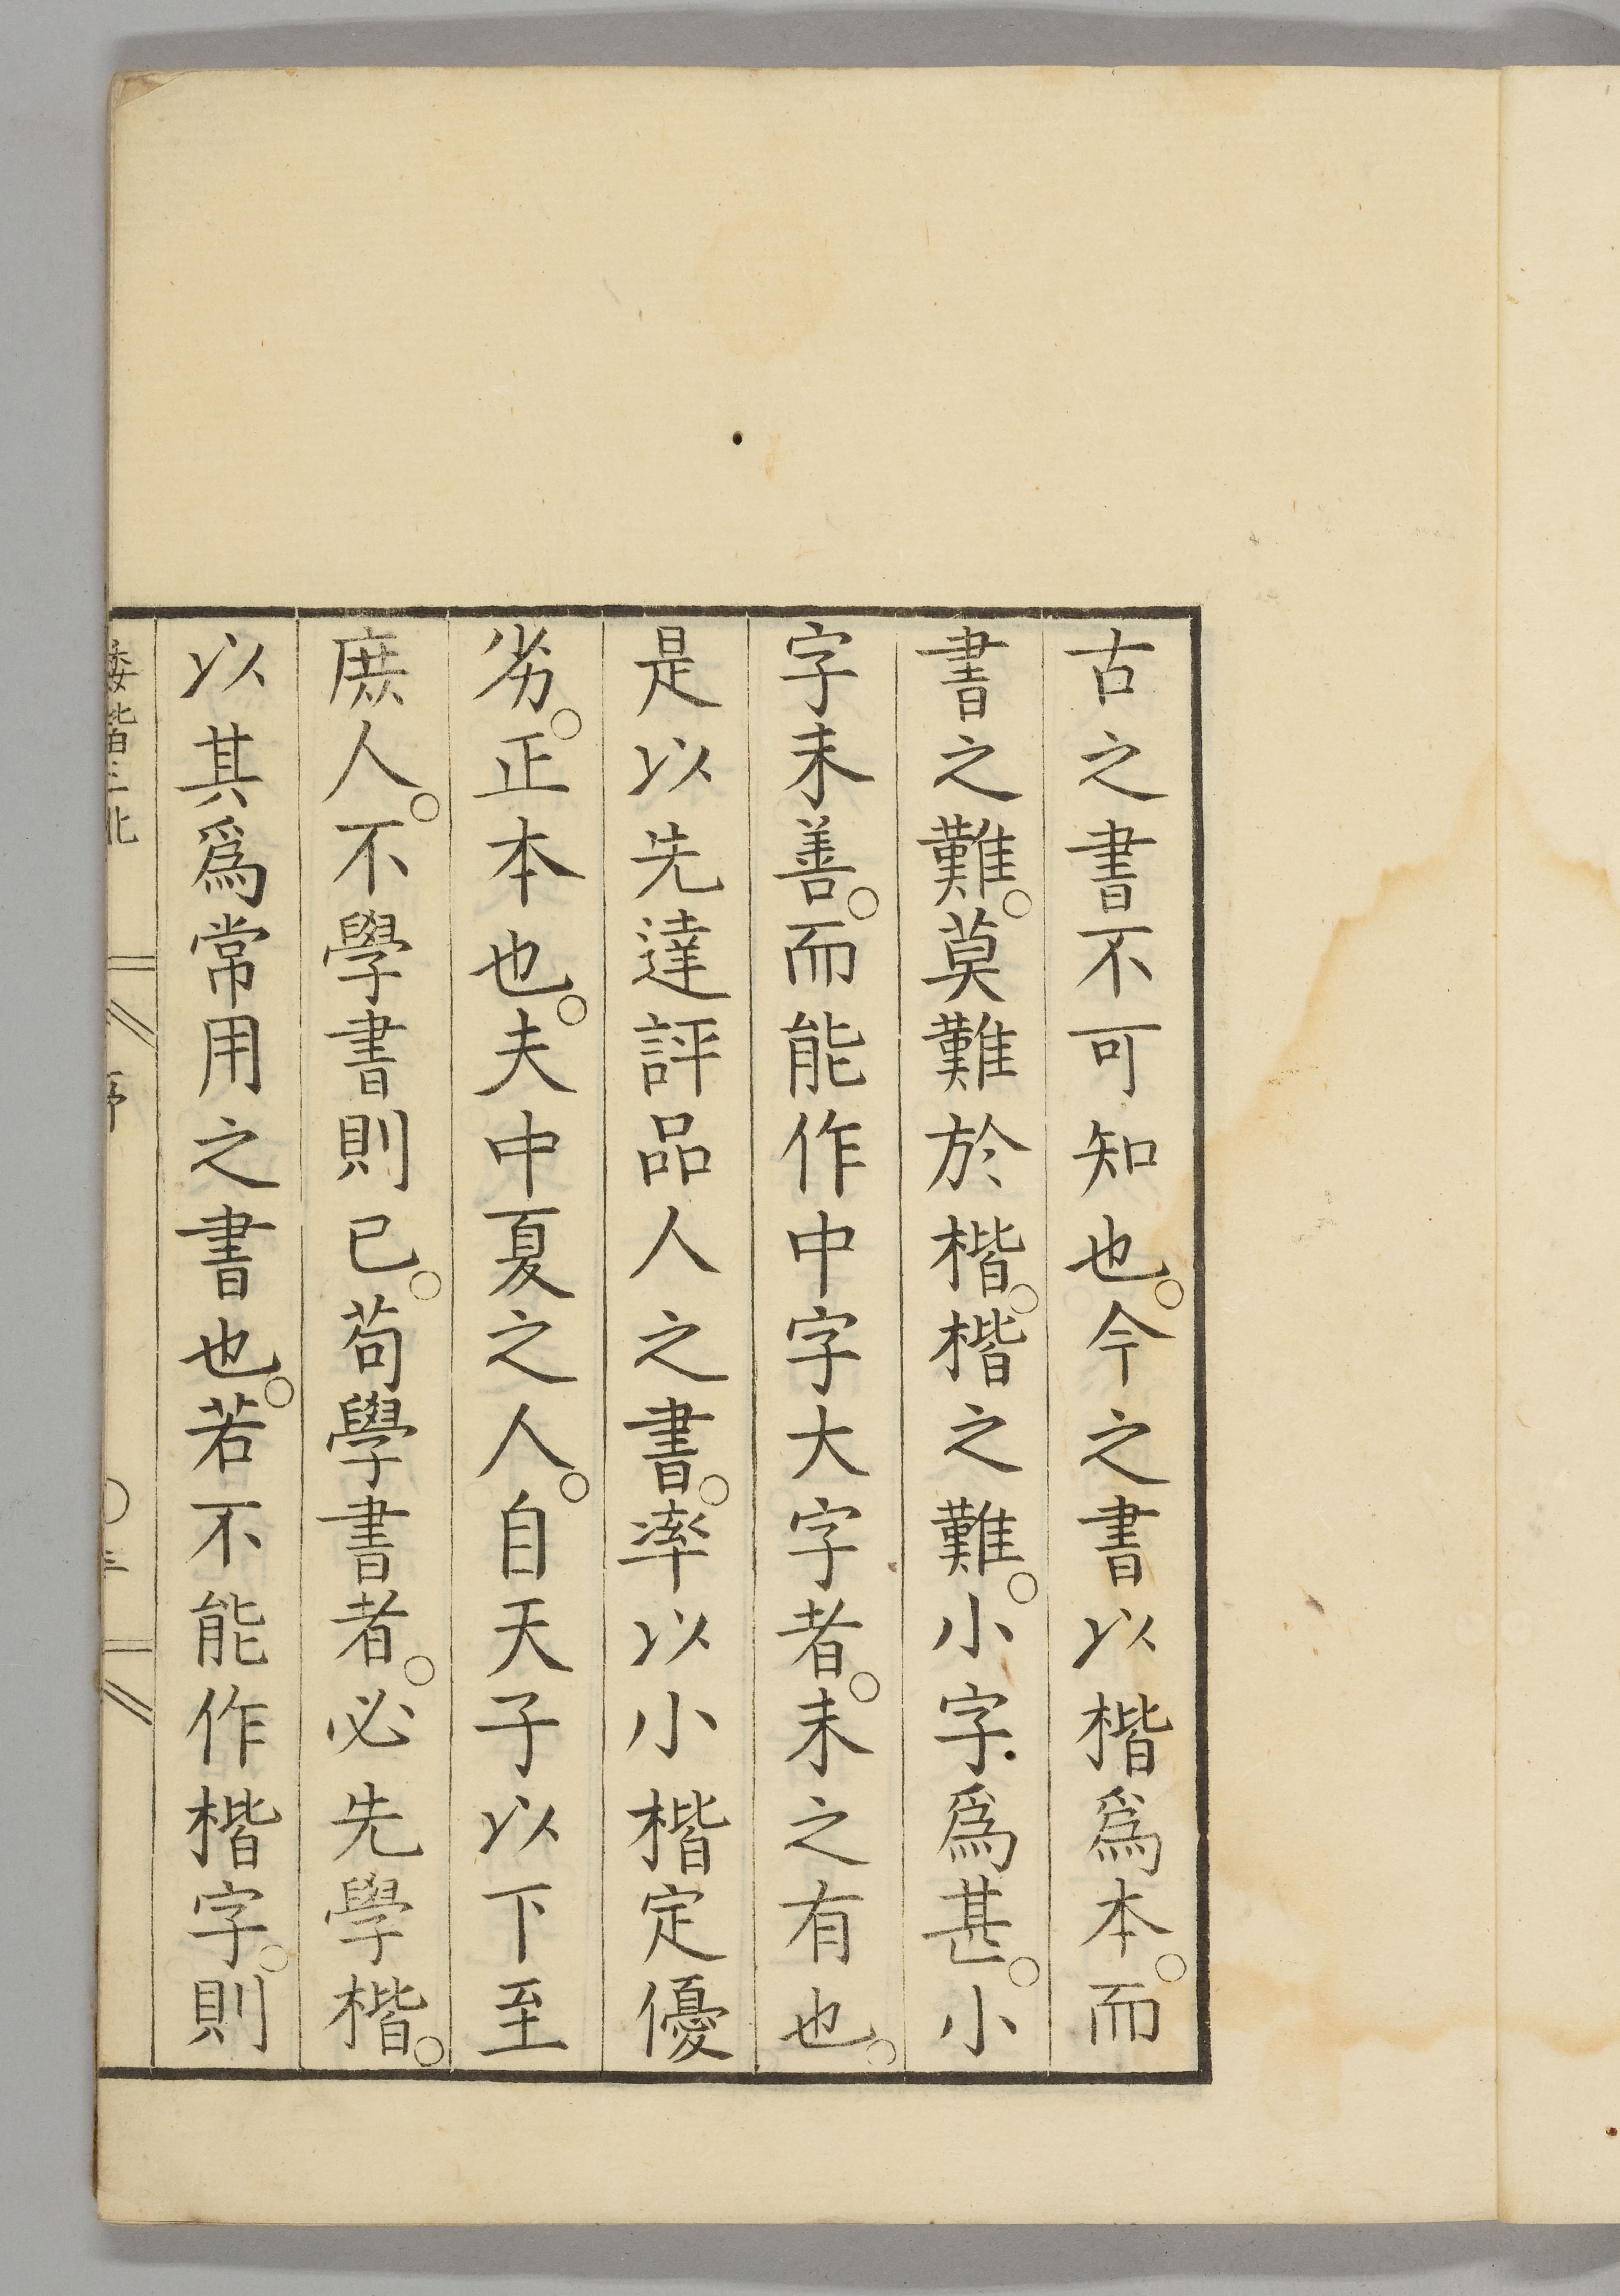 古之書不可知也。今之書以楷爲本。而
書之難。莫難於楷。楷之難。小字爲甚。小
字未善。而能作中字大字者。未之有也。
是以先達評品人之書。率以小楷定優
劣。正本也。夫中夏之人。自天子以下至
庶人。不學書則已。苟學書者。必先學楷。
以其爲常用之書也。若不能作楷字。則
倭楷正訛
序
三